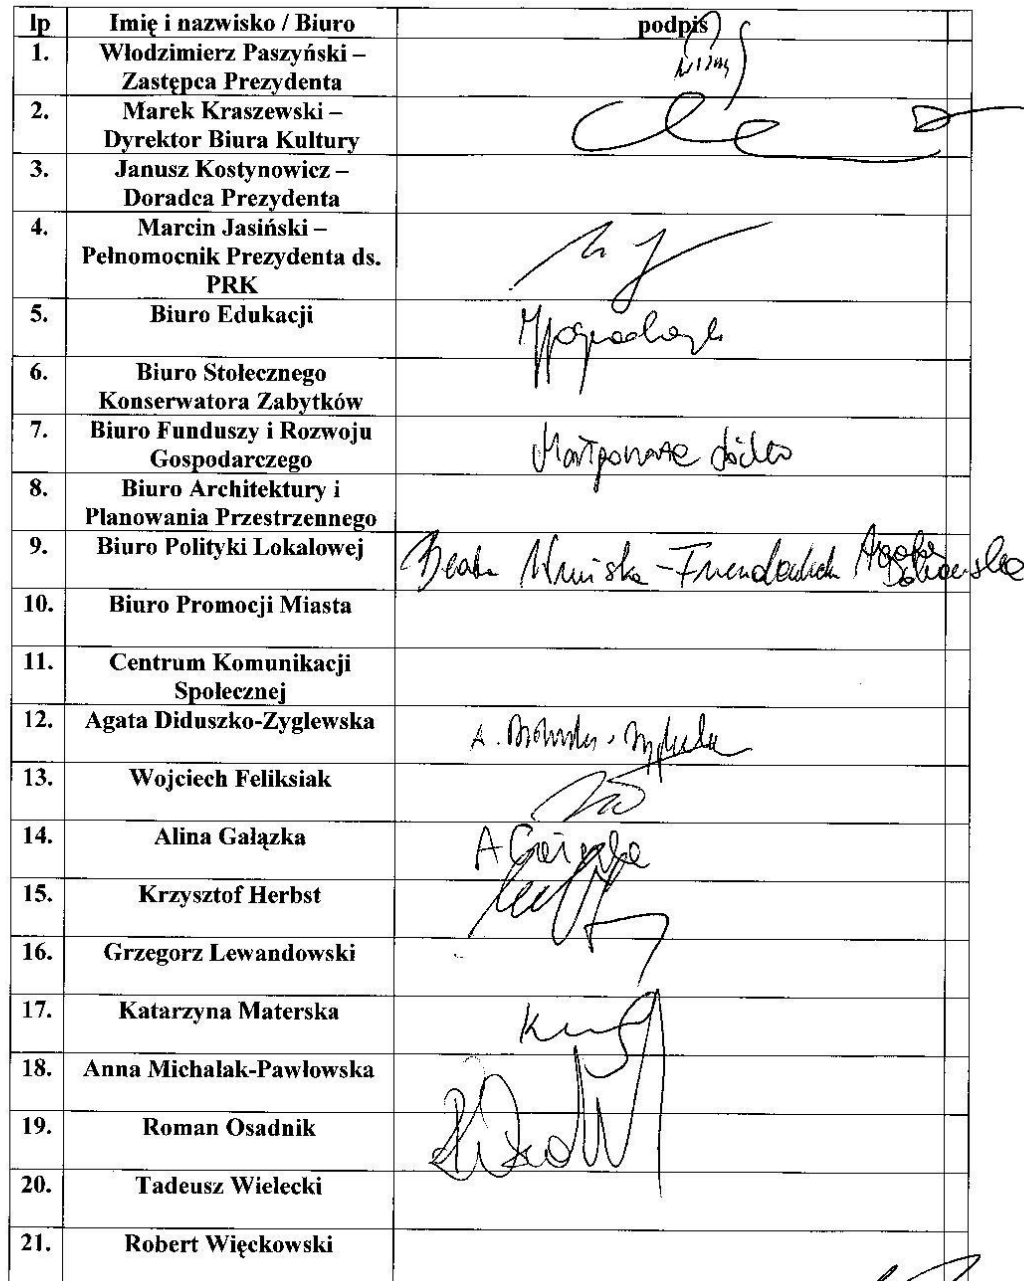 lp Imię i nazwisko / Biuro podpis
1. Włodzimierz Paszyński –
Zastępca Prezydenta
2. Marek Kraszewski –
Dyrektor Biura Kultury
3. Janusz Kostynowicz –
Doradca Prezydenta
4. Marcin Jasiński –
Pełnomocnik Prezydenta ds.
PRK
5. Biuro Edukacji
6. Biuro Stołecznego
Konserwatora Zabytków
7. Biuro Funduszy i Rozwoju
Gospodarczego
8. Biuro Architektury i
Planowania Przestrzennego
9. Biuro Polityki Lokalowej Beata
10. Biuro Promocji Miasta
11. Centrum Komunikacji
Społecznej
12. Agata Diduszko-Zyglewska
13. Wojciech Feliksiak
14. Alina Gałązka A Gałązka
15. Krzysztof Herbst
16. Grzegorz Lewandowski
17. Katarzyna Materska
18. Anna Michalak-Pawłowska
19. Roman Osadnik
20. Tadeusz Wielecki
21. Robert Więckowski